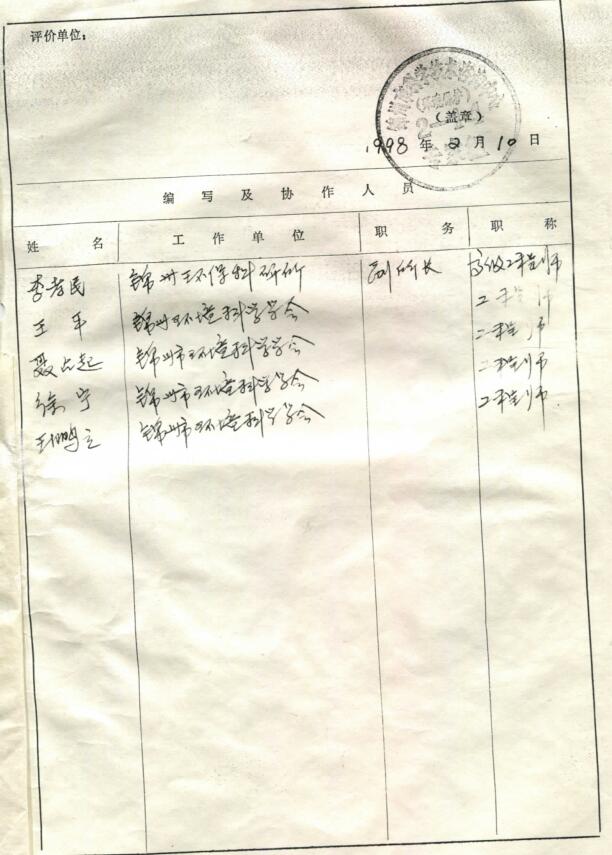 评价单位:
(盖章)
1998 年 2 月 10 日
编写及协作人员
姓名 工作单位 职务 职称
李孝民 锦州环保科研所 副所长 高级工程师
王 锦州环境科学学会 工程师
聂占起 锦州市环境科学学会 工程师
徐宁 锦州市环境科学学会 工程师
王鹏立 锦州市环境科学学会 工程师